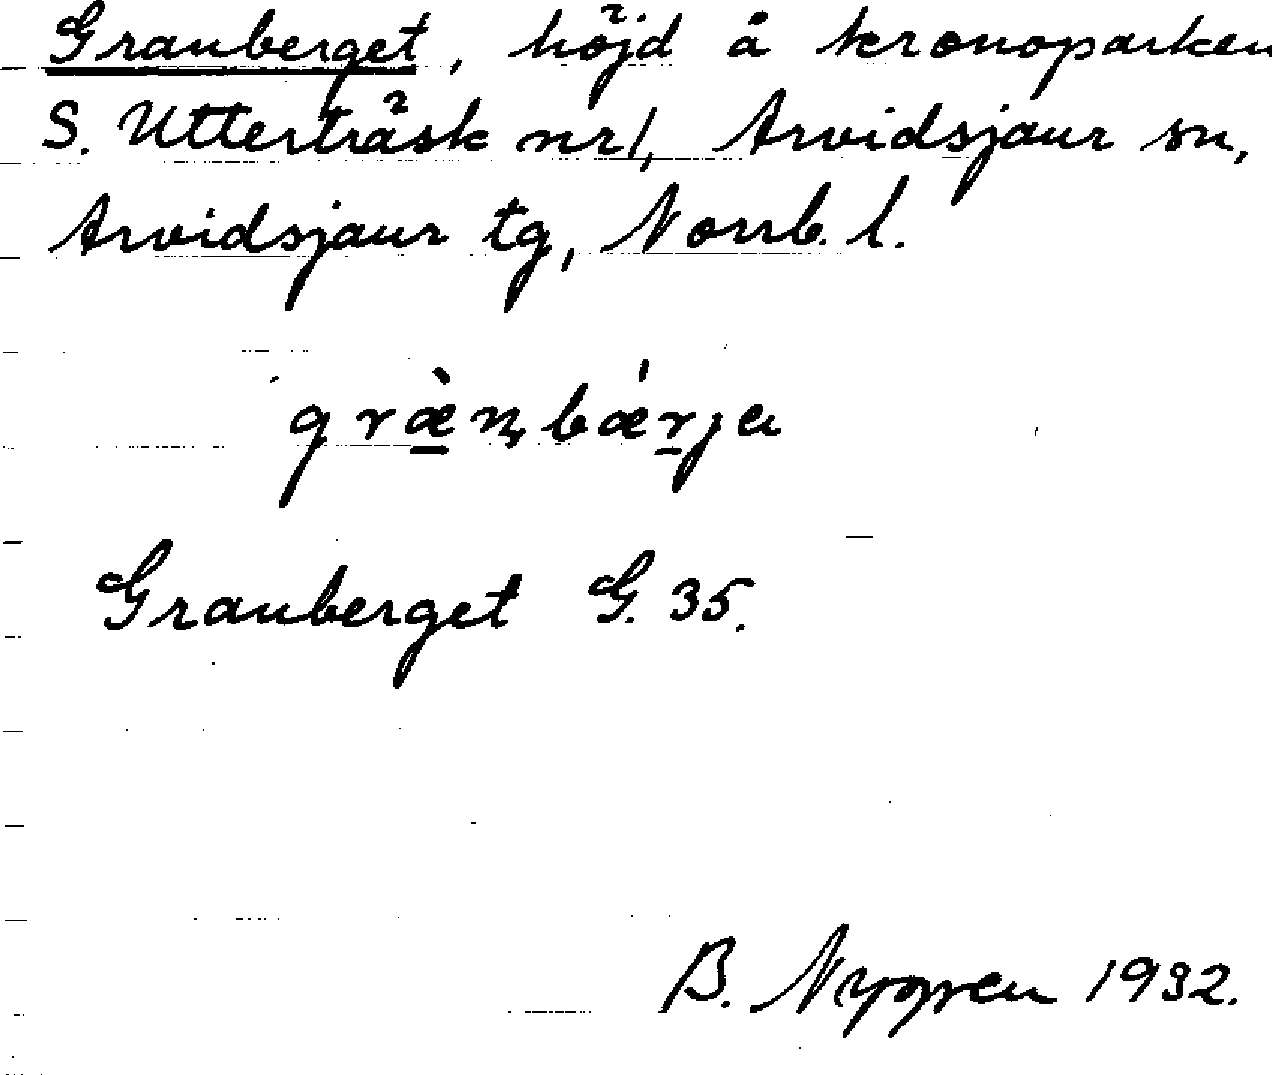 Granberget, höjd å kronoparken
S. Utterträsk nr 1, Arvidsjaur sn,
Arvidsjaur tg, Norrb. l.
Granberget G. 35.
B. Nygren 1932.